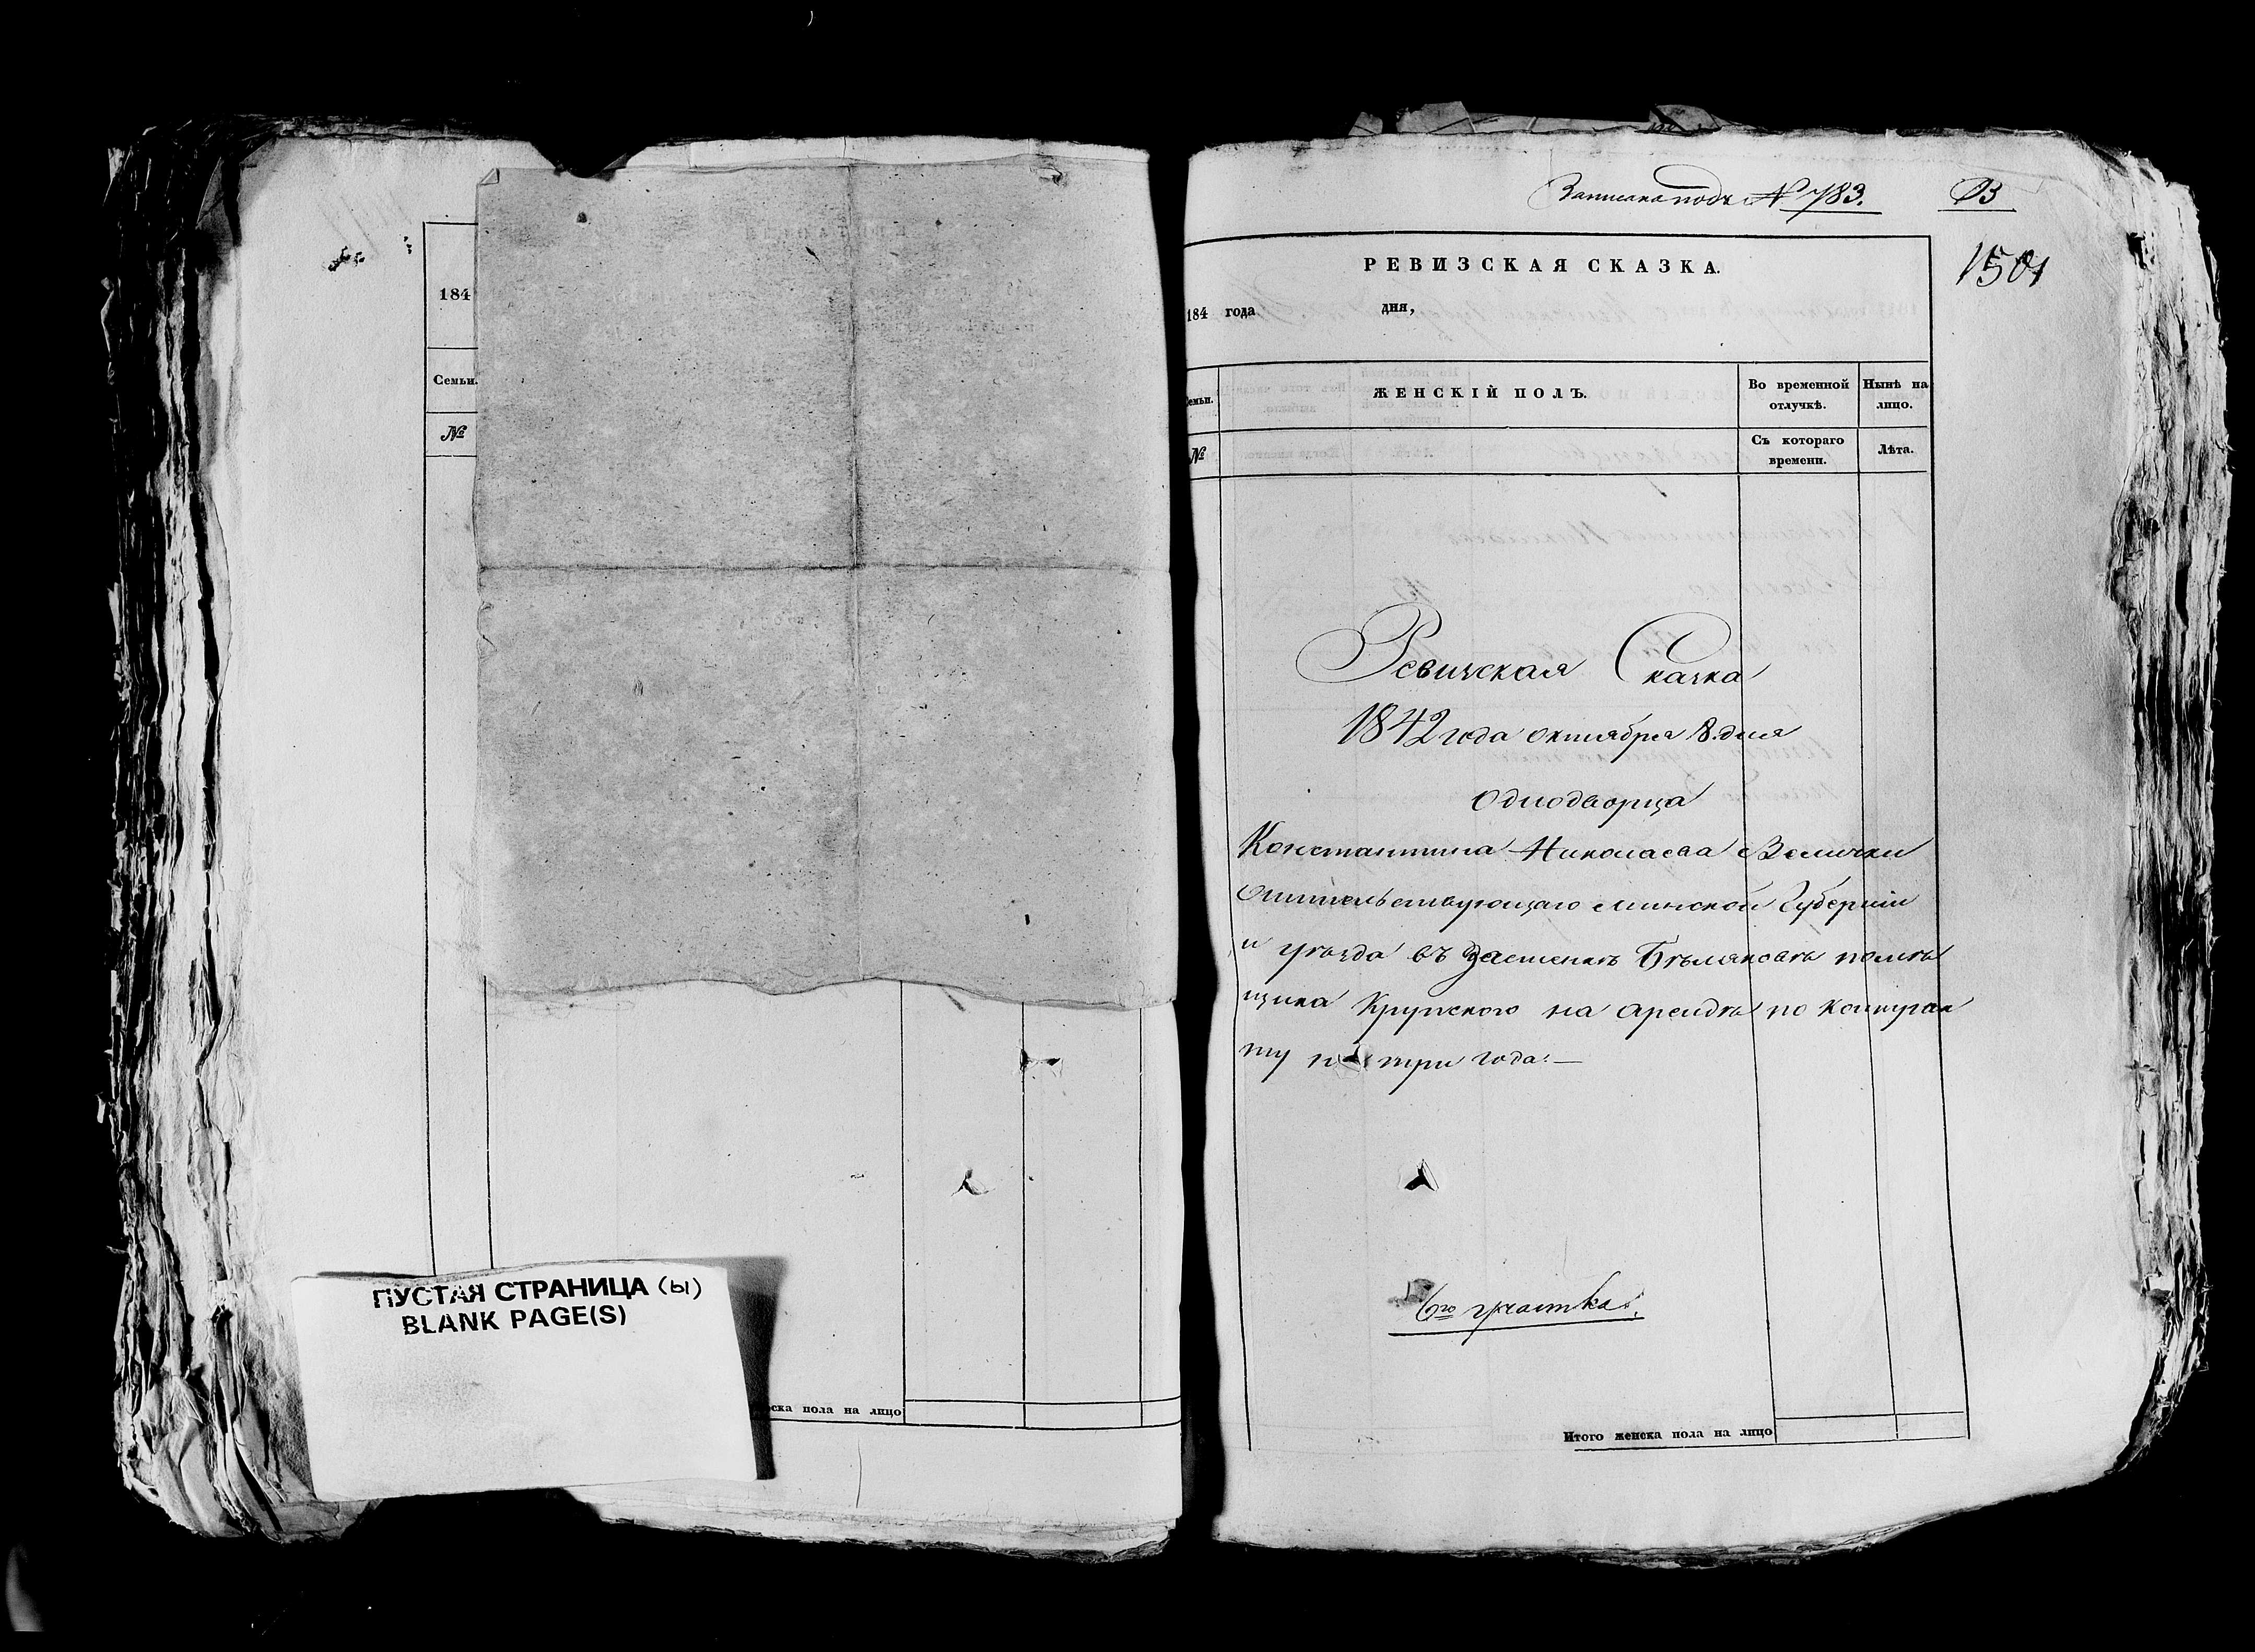 184
Семьи.
№
ПУСТАЯ СТРАНИЦА (ы)
BLANK PAGE(S)
ска пола на лицо
Записана подъ № 783.
В
1501
РЕВИЗСКАЯ СКАЗКА.
184 года дня,
Семьи.
ЖЕНСКІЙ ПОЛЪ.
Во временной отлучкѣ.
Нынѣ на лицо.
№
Съ котораго времени.
Лѣта.
Ревизская Сказка
1842 года октября 8. дня
Однодворца
Константина Николаева Велички
жительствующаго Минской Губерніи
и уѣзда въ Застенкѣ помѣ
щика Крупского на арендѣ по контрак
ту на три года.—
6го участка.
Итого женска пола на лицо